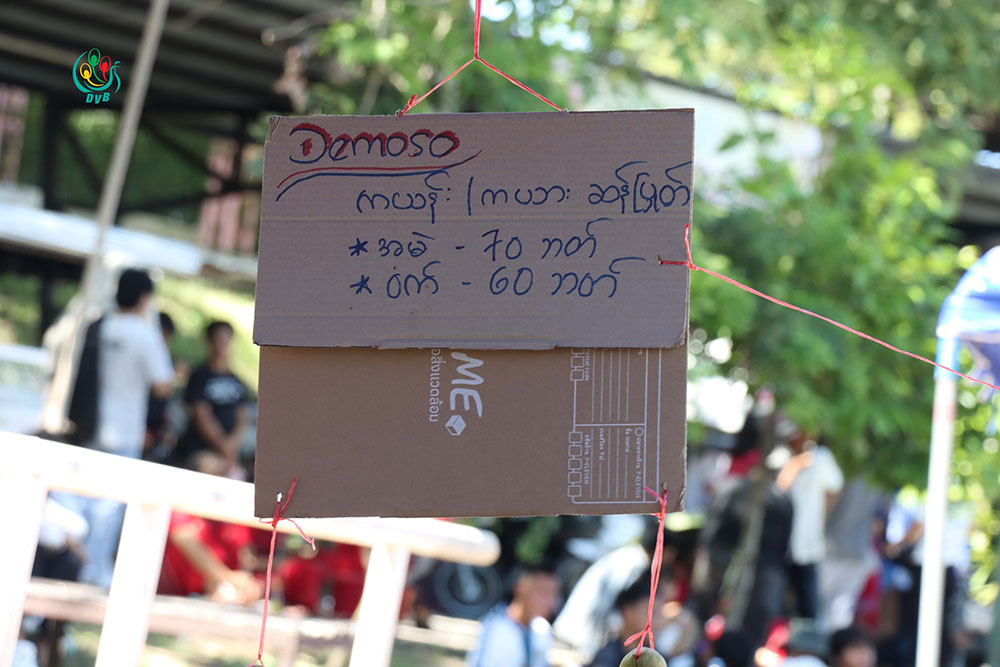 DVB
Demoso
ကယန်း / ကယား ဆန်ပြုတ်
* အမဲ - 70 ဘတ်
* ဝက် - 60 ဘတ်
ME